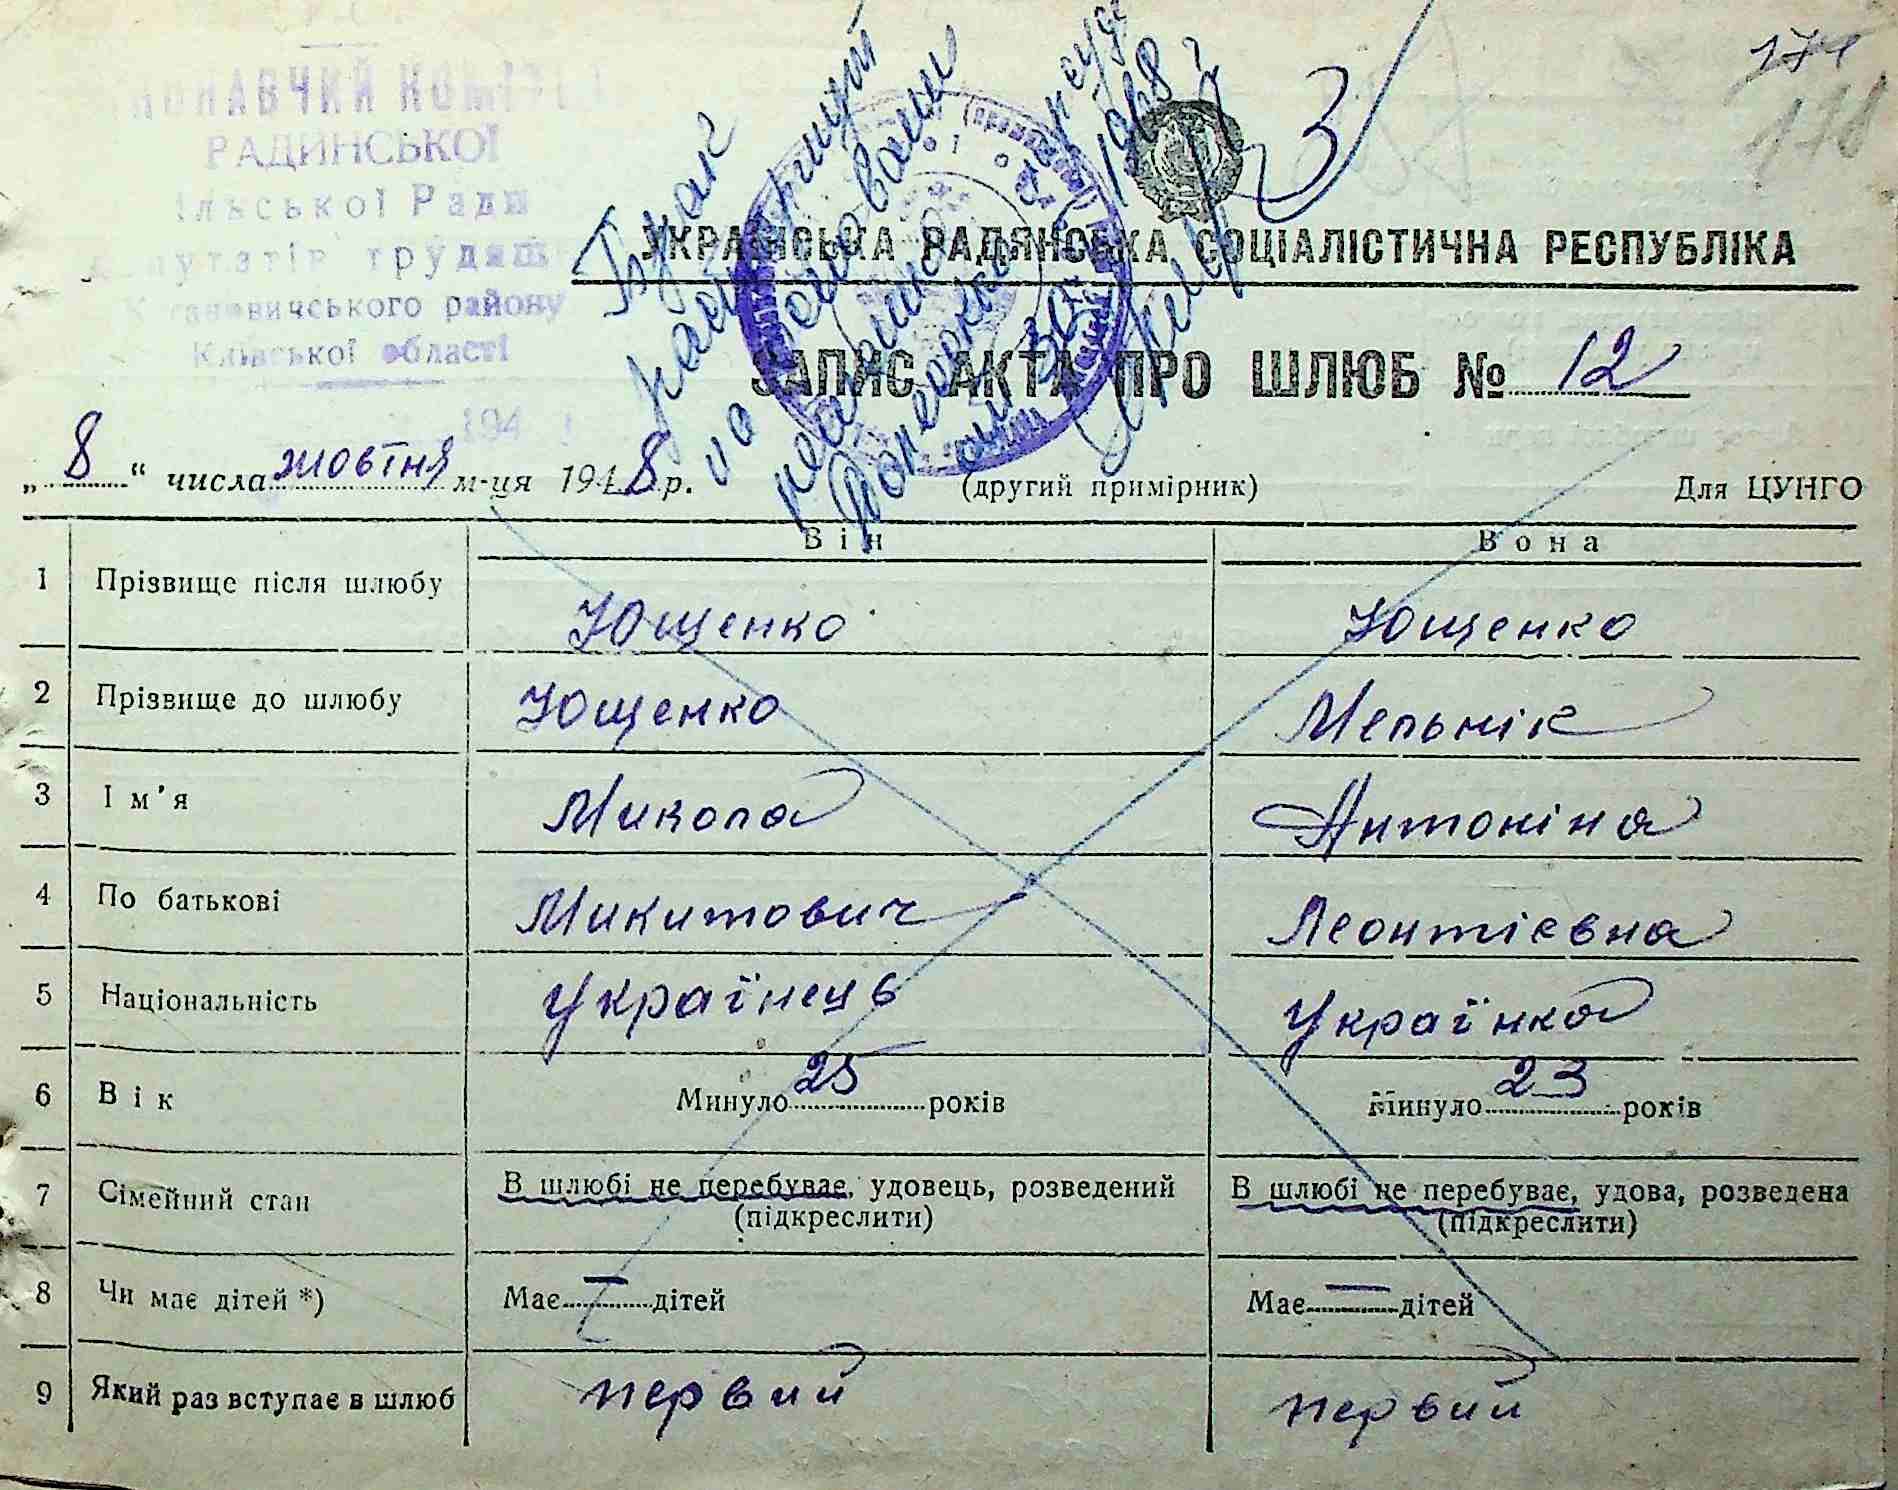 171
178
РАДИНСЬКОЇ
ільської Ради
депутатів трудящ
Кагановичського району
Київської області
194
Брак
расторгнут
на основании
решения
суда
1968
3
УКРАЇНСЬКА РАДЯНСЬКА СОЦІАЛІСТИЧНА РЕСПУБЛІКА
ЗАПИС АКТА ПРО ШЛЮБ № 12
„8“ числа жовтня м-ця 1948 р. (другий примірник) Для ЦУНГО
Він Вона
1 Прізвище після шлюбу Ющенко Ющенко
2 Прізвище до шлюбу Ющенко Мельнік
3 Ім'я Микола Антоніна
4 По батькові Микитович Леонтієвна
5 Національність Українець Українка
6 Вік Минуло 25 років Минуло 23 років
7 Сімейний стан В шлюбі не перебуває, удовець, розведений В шлюбі не перебуває, удова, розведена
(підкреслити) (підкреслити)
8 Чи має дітей *) Має — дітей Має — дітей
9 Який раз вступає в шлюб первий первий